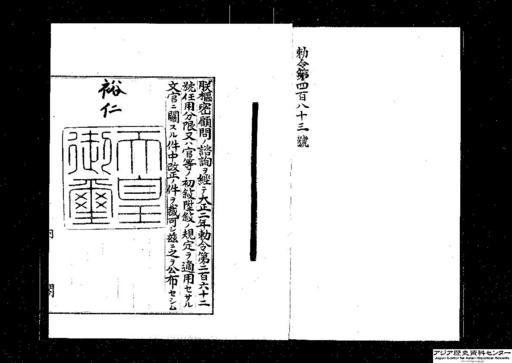 勅令第四百八十三號
朕樞密顧問ノ諮詢ヲ經テ大正二年勅令第二百六十二
號任用分限又ハ官等ノ初敍陞敍ノ規定ヲ適用セサル
文官ニ關スル件中改正ノ件ヲ裁可シ茲ニ之ヲ公布セシム
裕仁
天皇
御璽
内
閣
アジア歴史資料センター
Japan Center for Asian Historical Records